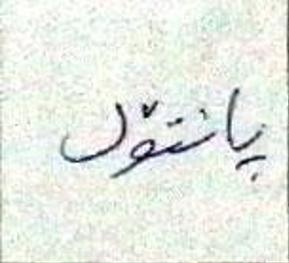 پانتۆڵ